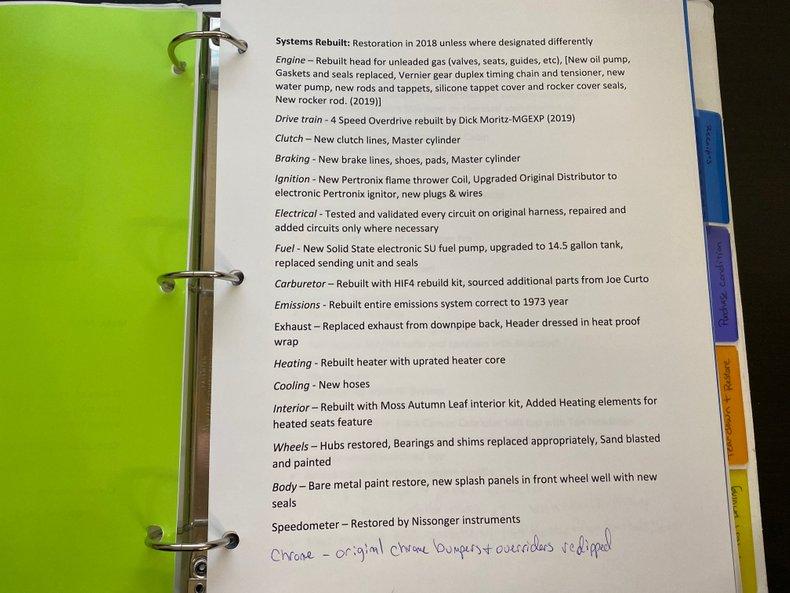 Systems Rebuilt: Restoration in 2018 unless where designated differently
Engine – Rebuilt head for unleaded gas (valves, seats, guides, etc), [New oil pump,
Gaskets and seals replaced, Vernier gear duplex timing chain and tensioner, new
water pump, new rods and tappets, silicone tappet cover and rocker cover seals,
New rocker rod. (2019)]
Drive train - 4 Speed Overdrive rebuilt by Dick Moritz-MGEXP (2019)
Clutch – New clutch lines, Master cylinder
Braking - New brake lines, shoes, pads, Master cylinder
Ignition - New Pertronix flame thrower Coil, Upgraded Original Distributor to
electronic Pertronix ignitor, new plugs & wires
Electrical - Tested and validated every circuit on original harness, repaired and
added circuits only where necessary
Fuel - New Solid State electronic SU fuel pump, upgraded to 14.5 gallon tank,
replaced sending unit and seals
Carburetor – Rebuilt with HIF4 rebuild kit, sourced additional parts from Joe Curto
Emissions - Rebuilt entire emissions system correct to 1973 year
Exhaust – Replaced exhaust from downpipe back, Header dressed in heat proof
wrap
Heating - Rebuilt heater with uprated heater core
Cooling - New hoses
Interior – Rebuilt with Moss Autumn Leaf interior kit, Added Heating elements for
heated seats feature
Wheels – Hubs restored, Bearings and shims replaced appropriately, Sand blasted
and painted
Body – Bare metal paint restore, new splash panels in front wheel well with new
seals
Speedometer – Restored by Nissonger instruments
Chrome - original chrome bumpers + overriders redipped
Receipts
Purchase Condition
Teardown + Restore